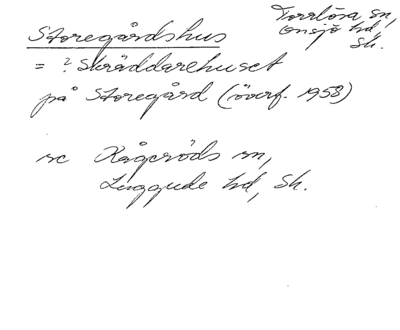 Storegårdshus
Torrlösa sn,
Onsjö hd,
Sk.
= ? Skräddarehuset
på Storegård (överf. 1958)
nc Kågeröds sn,
Luggude hd, Sk.